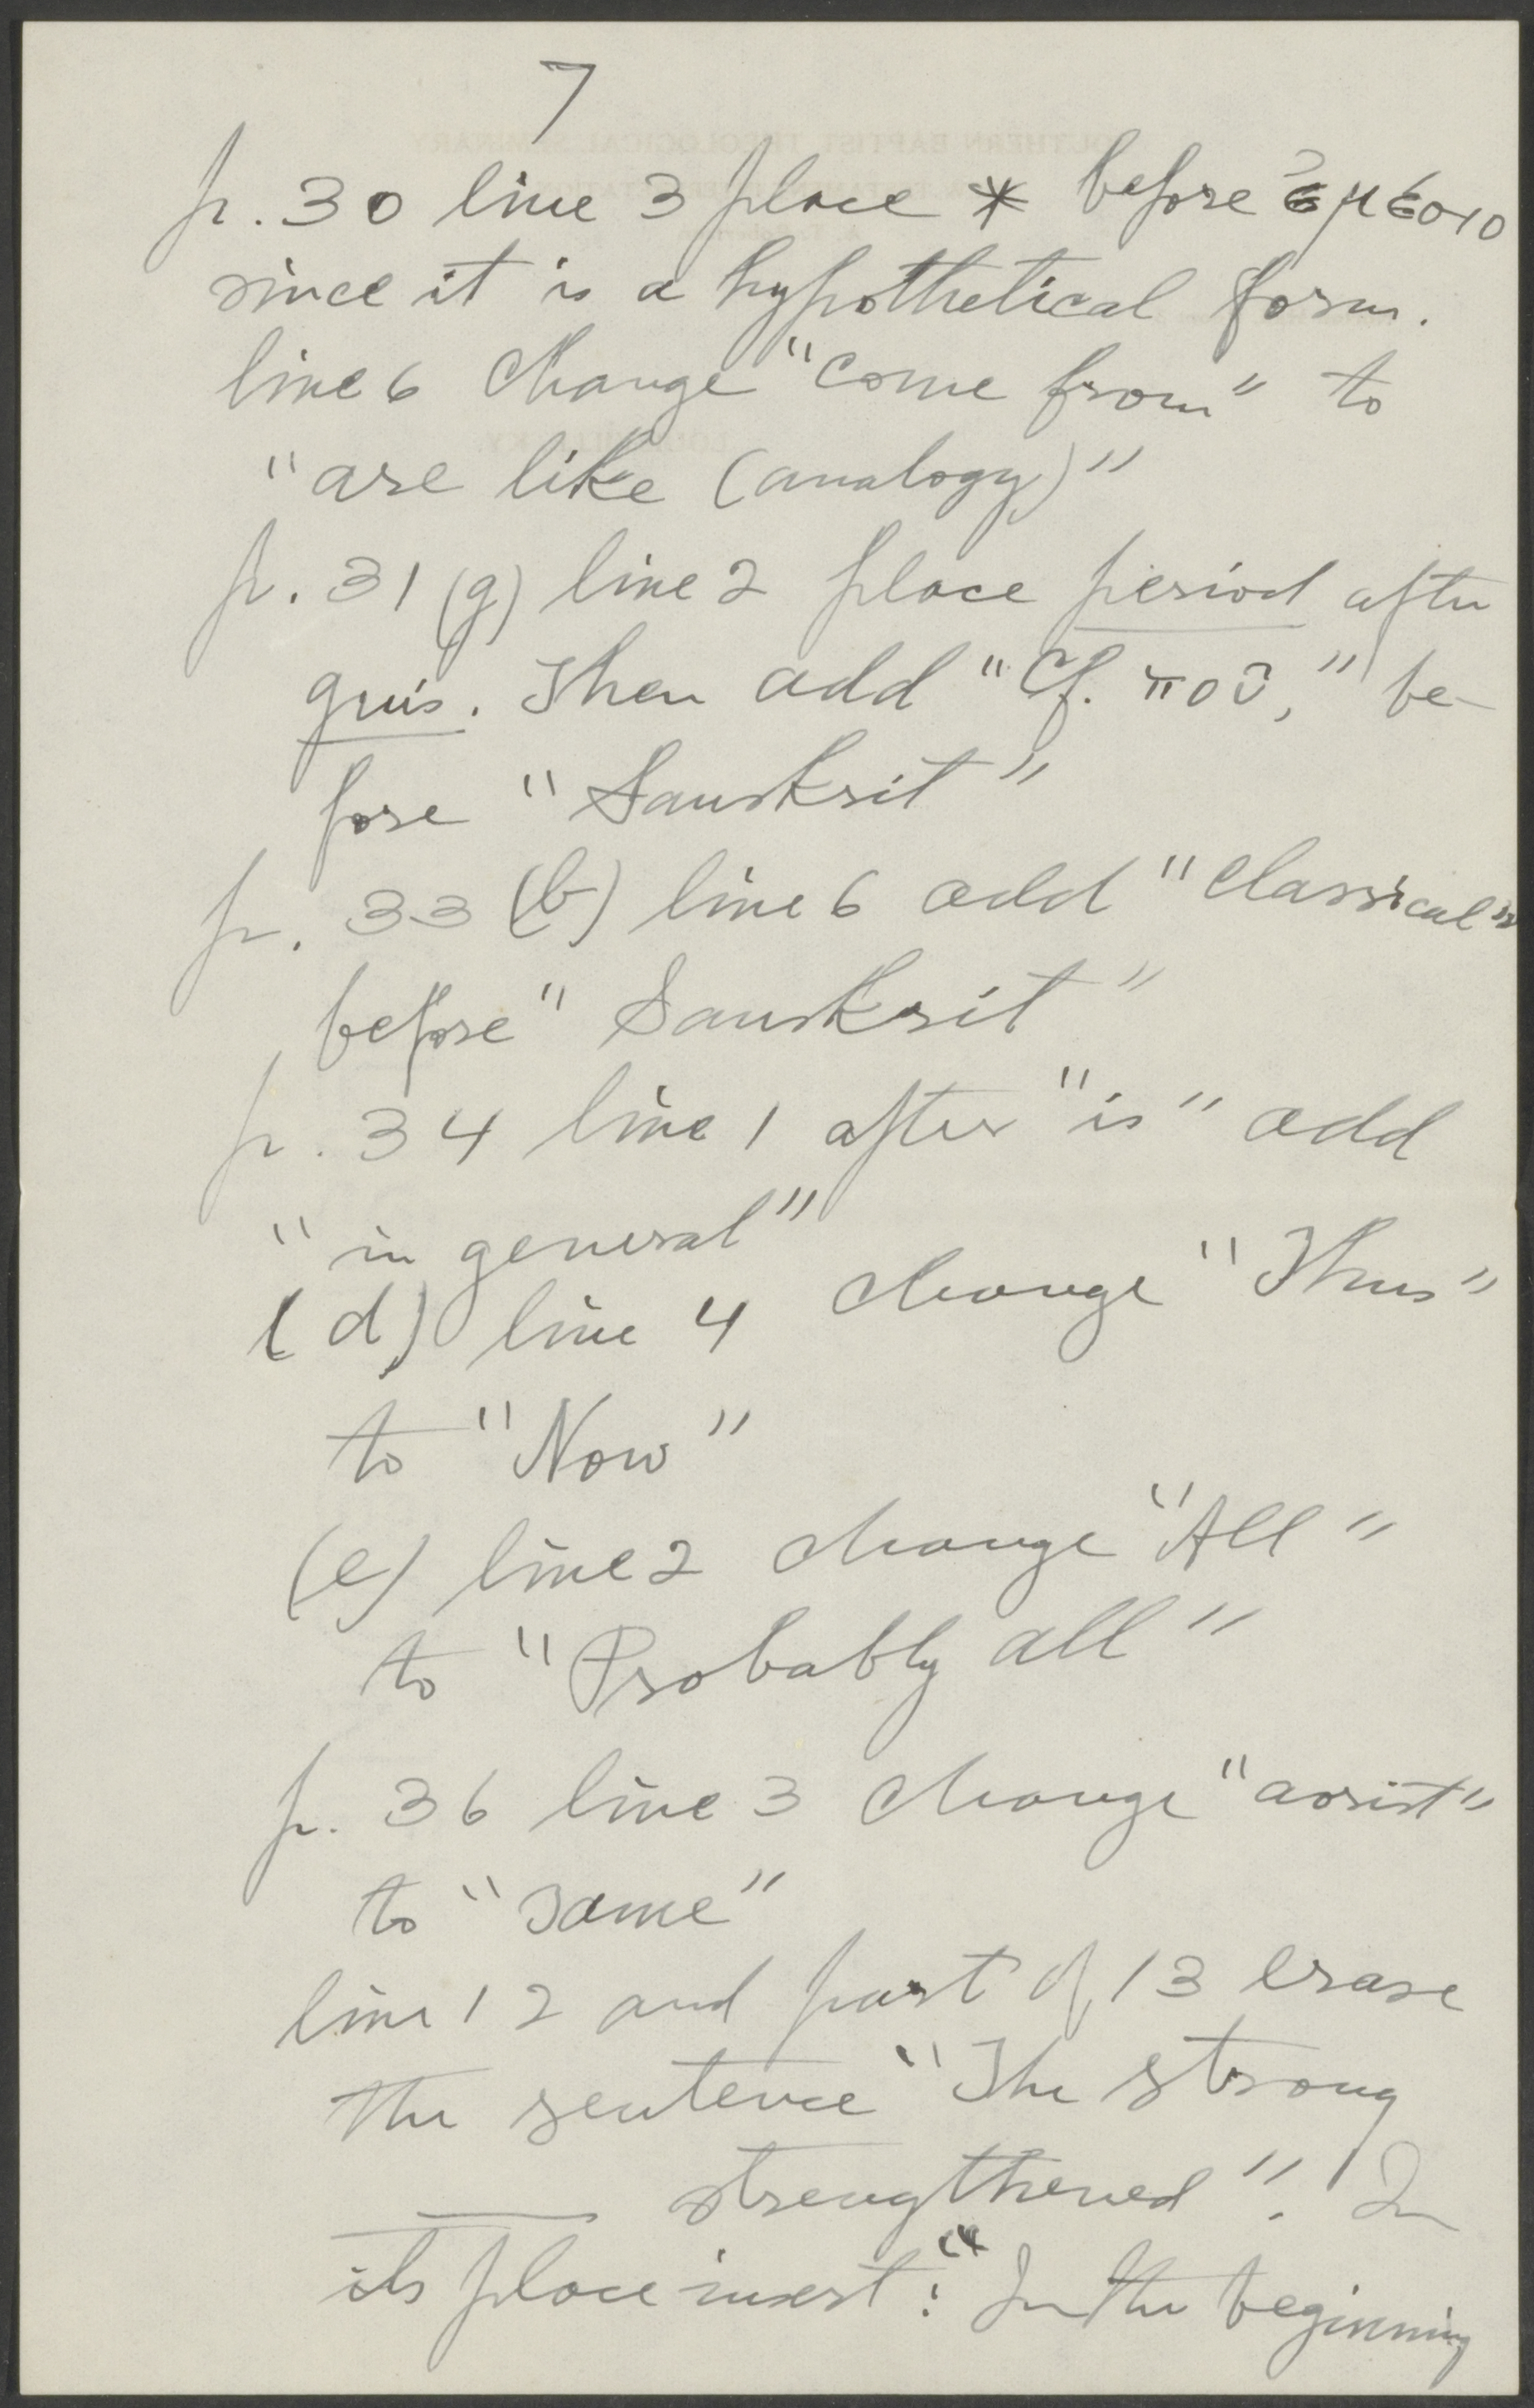 7
p. 30 line 3 place * before ἐμέσιο
since it is a hypothetical form.
line 6 change "come from" to
"are like (analogy)"
p. 31 (g) line 2 place period after
quis. Then add "Cf. ποῦ," be-
fore "Sanskrit"
p. 33 (b) line 6 add "Classical"
before "Sanskrit"
p. 34 line 1 after "is" add
"in general"
(d) line 4 change "Thus"
to "Now"
(e) line 2 change "All"
to "Probably all"
p. 36 line 3 change "aorist"
to "same"
line 12 and part of 13 erase
the sentence "The strong
strengthened". In
its place insert: "In the beginning